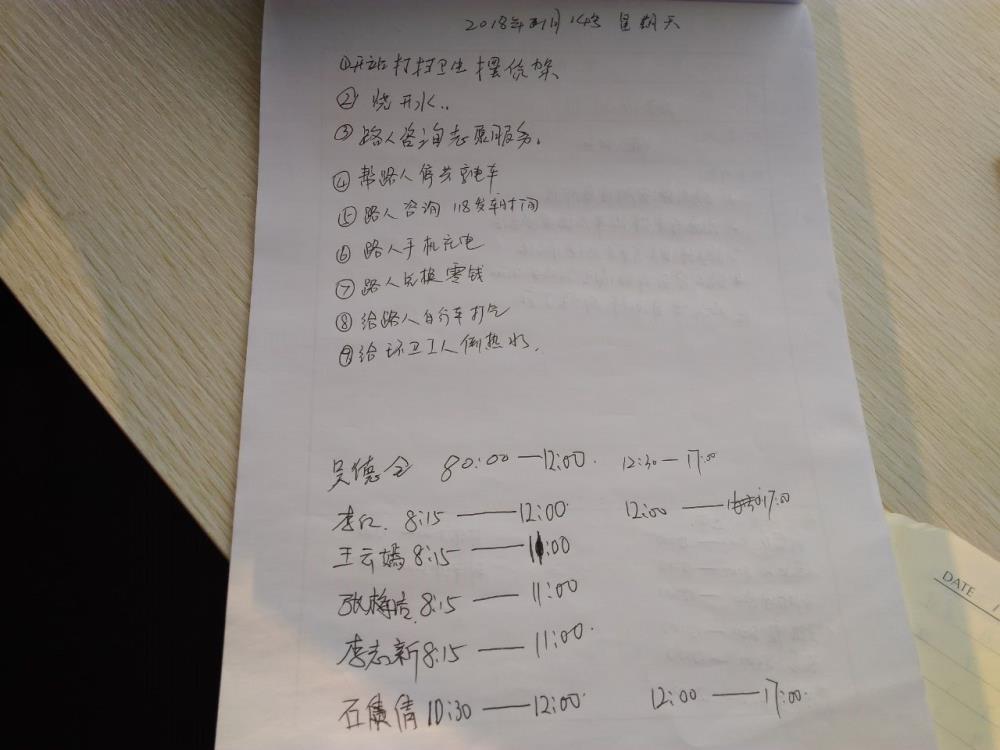 2018年1月14号 星期天
①开站打扫卫生 摆货架
② 烧开水..
③ 路人咨询志愿服务。
④ 帮路人停共享电车
⑤ 路人咨询 118发车时间
⑥ 路人手机充电
⑦ 路人兑换零钱
⑧ 给路人自行车打气
⑨ 给环卫工人倒热水.
吴德全 80:00—12:00. 12:30—17:00
李红. 8:15——12:00 12:00——17:00
王云嫣 8:15——11:00
张梅 8:15——11:00
李志新 8:15——11:00.
石倩 10:30——12:00. 12:00——17:00.
DATE